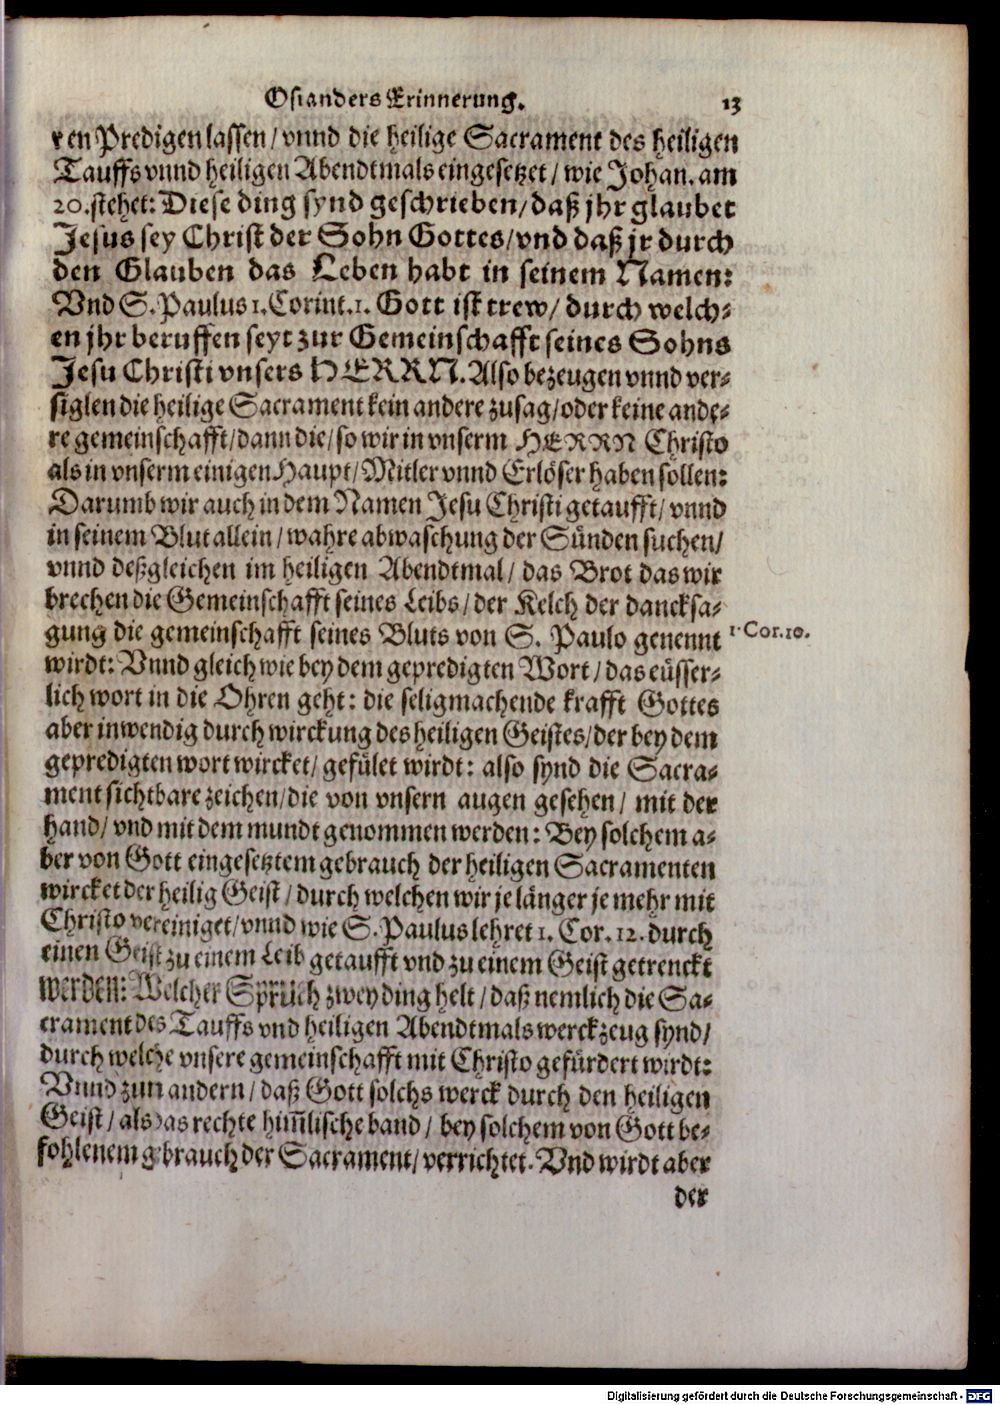 Osianders Erinnerung. 13
ren Predigen lassen / vnnd die heilige Sacrament des heiligen
Tauffs vnnd heiligen Abendtmals eingesetzet / wie Johan. am
20. stehet: Diese ding synd geschrieben / daß jhr glaubet
Jesus sey Christ der Sohn Gottes / vnd daß jr durch
den Glauben das Leben habt in seinem Namen:
Vnd S. Paulus 1. Corint. 1. Gott ist trew / durch welch⸗
en jhr beruffen seyt zur Gemeinschafft seines Sohns
Jesu Christi vnsers HERRN. Also bezeugen vnnd ver⸗
siglen die heilige Sacrament kein andere zusag / oder keine ande⸗
re gemeinschafft / dann die / so wir in vnserm HERRN Christo
als in vnserm einigen Haupt / Mitler vnnd Erlöser haben sollen:
Darumb wir auch in dem Namen Jesu Christi getaufft / vnnd
in seinem Blut allein / wahre abwaschung der Sünden suchen /
vnnd deßgleichen im heiligen Abendtmal / das Brot das wir
brechen die Gemeinschafft seines Leibs / der Kelch der dancksa⸗
gung die gemeinschafft seines Bluts von S. Paulo genennt
1. Cor. 10.
wirdt: Vnnd gleich wie bey dem gepredigten Wort / das eüsser⸗
lich wort in die Ohren geht: die seligmachende krafft Gottes
aber inwendig durch wirckung des heiligen Geistes / der bey dem
gepredigten wort wircket / gefület wirdt: also synd die Sacra⸗
ment sichtbare zeichen / die von vnsern augen gesehen / mit der
hand / vnd mit dem mundt genommen werden: Bey solchem a⸗
ber von Gott eingesetztem gebrauch der heiligen Sacramenten
wircket der heilig Geist / durch welchen wir je länger je mehr mit
Christo vereiniget / vnnd wie S. Paulus lehret 1. Cor. 12. durch
einen Geist zu einem Leib getaufft vnd zu einem Geist getrenckt
werden: Welcher Spruch zwey ding helt / daß nemlich die Sa⸗
crament des Tauffs vnd heiligen Abendtmals werckzeug synd /
durch welche vnsere gemeinschafft mit Christo gefürdert wirdt:
Vnnd zun andern / daß Gott solchs werck durch den heiligen
Geist / als das rechte him̅lische band / bey solchem von Gott be⸗
fohlenem gebrauch der Sacrament / verrichtet. Vnd wirdt aber
der
Digitalisierung gefördert durch die Deutsche Forschungsgemeinschaft - DFG